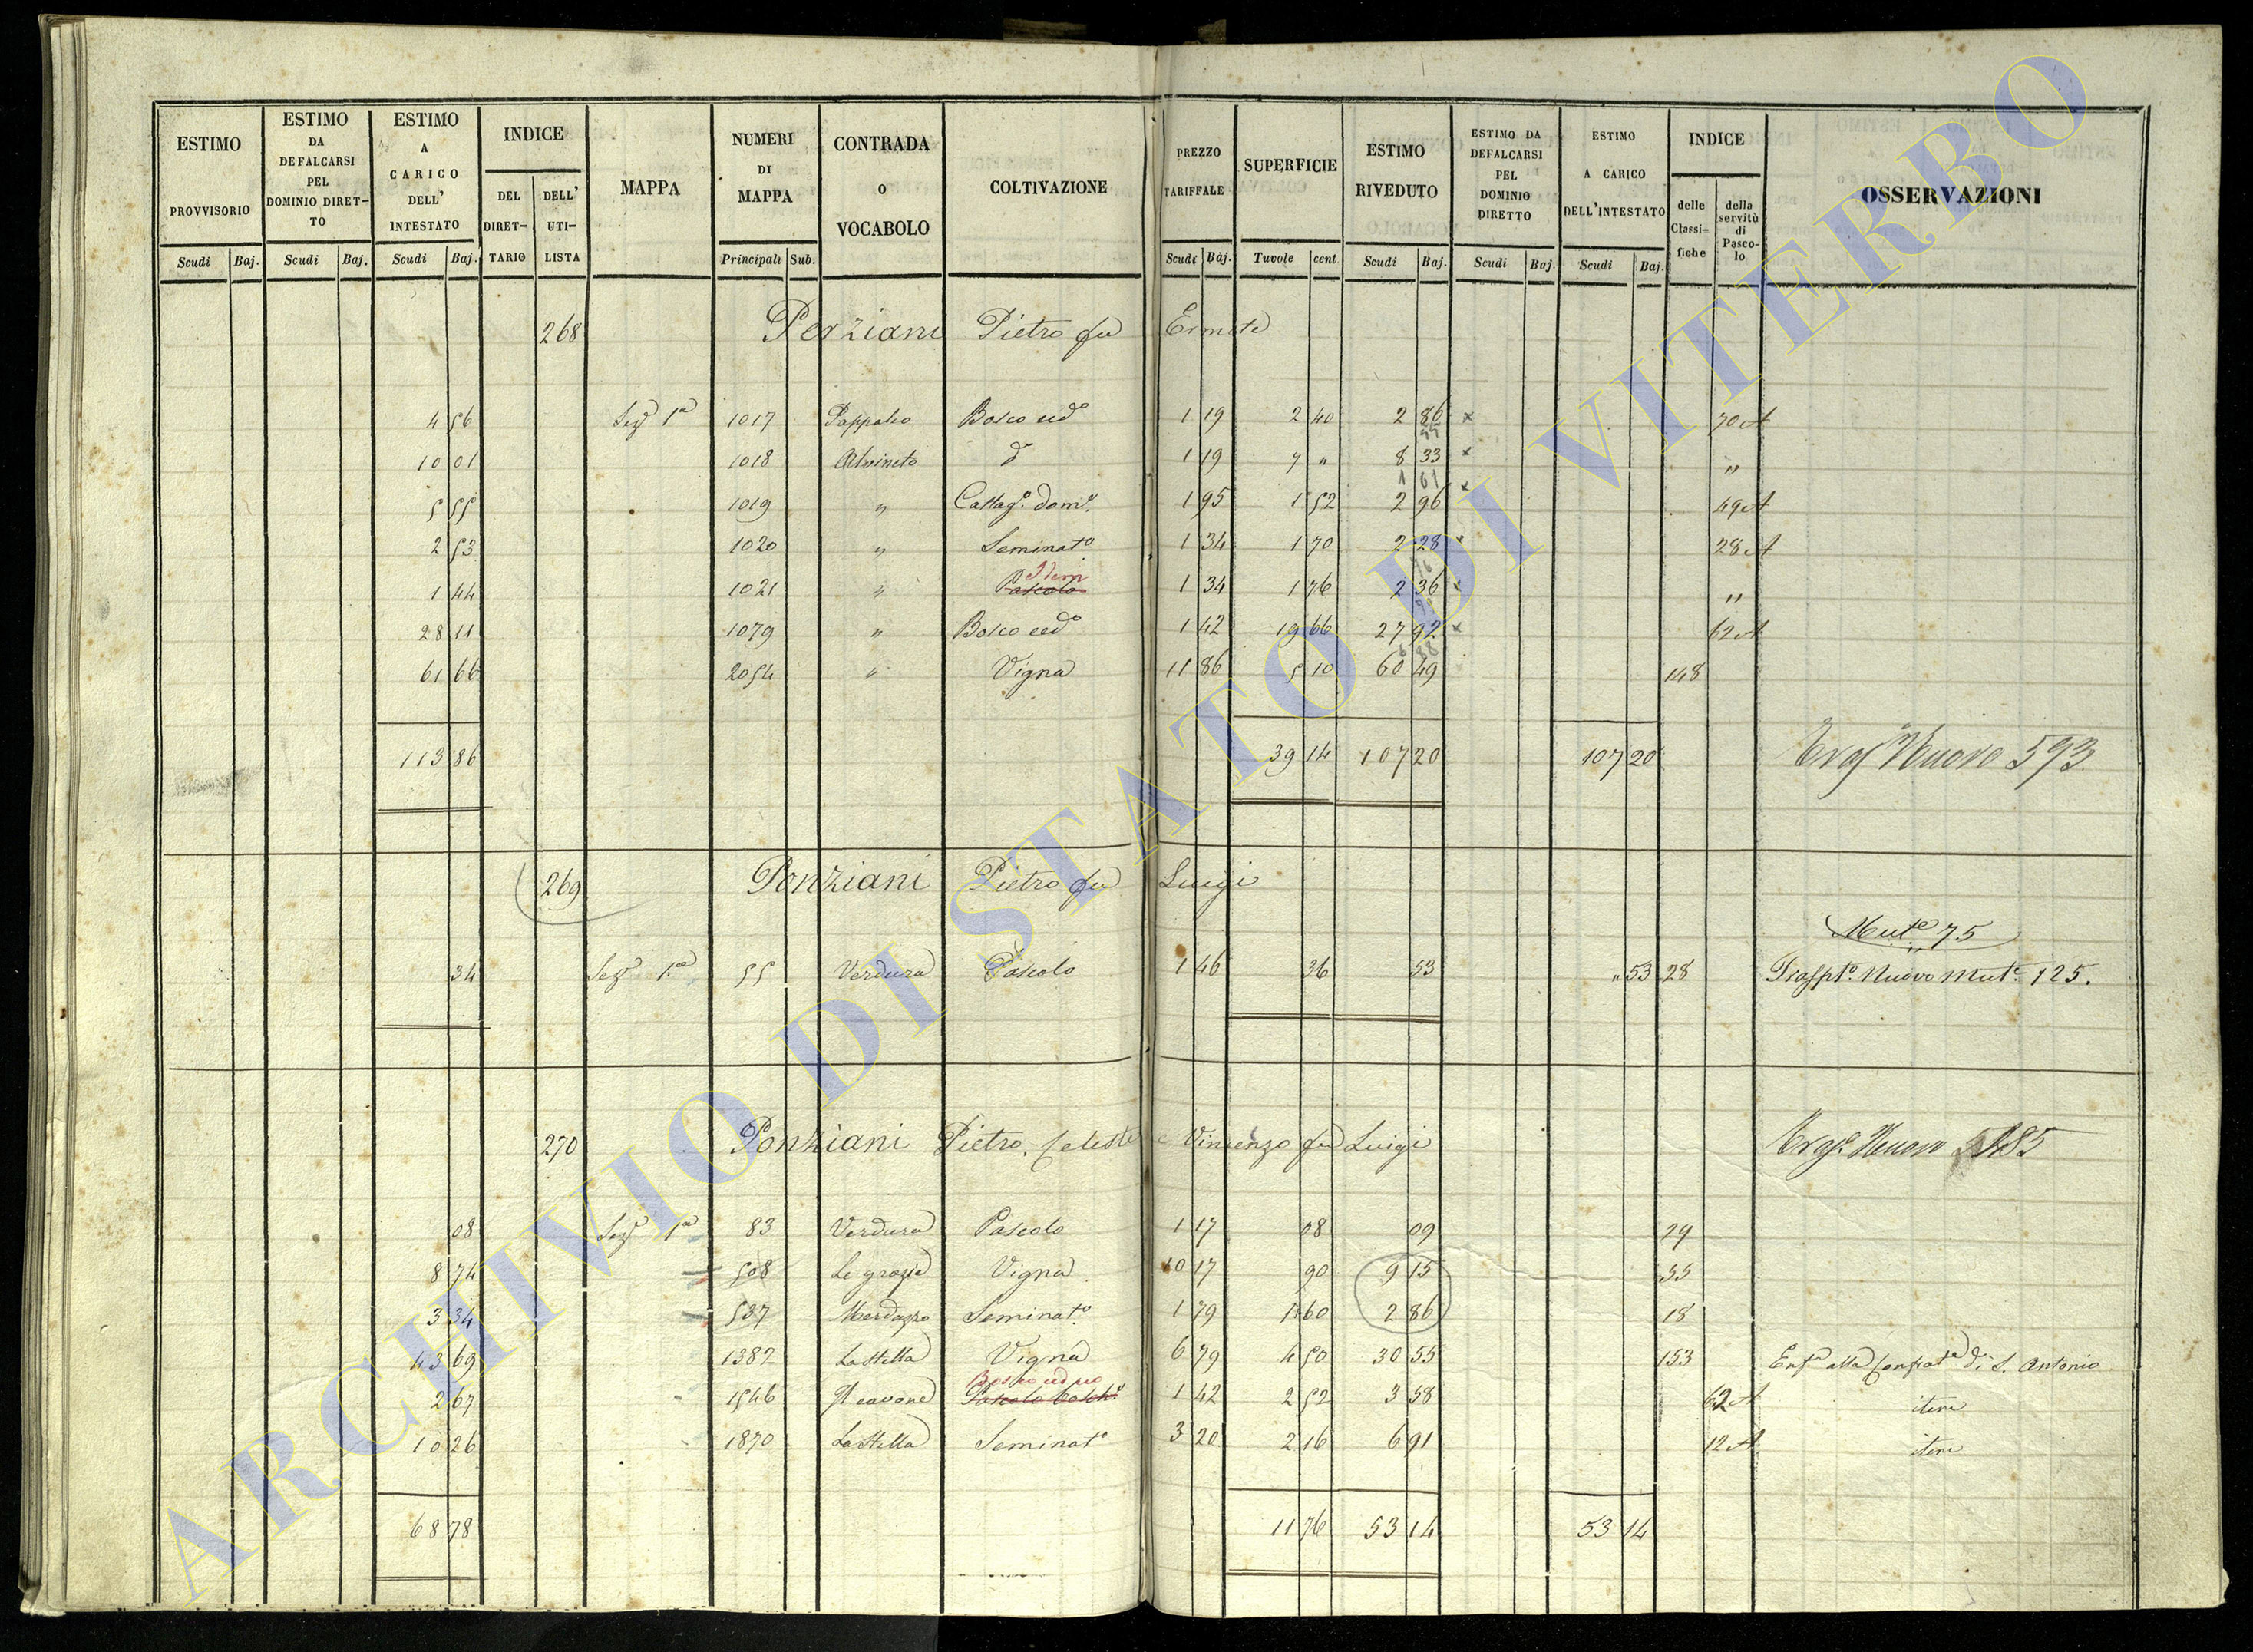 ESTIMO PROVVISORIO
Scudi Baj.
ESTIMO DA DEFALCARSI PEL DOMINIO DIRETTO
Scudi Baj.
ESTIMO A CARICO DELL' INTESTATO
Scudi Baj.
INDICE
DEL DIRETTARIO
DELL' UTILISTA
MAPPA
NUMERI DI MAPPA
Principali Sub.
CONTRADA O VOCABOLO
COLTIVAZIONE
PREZZO TARIFFALE
Scudi Baj.
SUPERFICIE
Tavole cent
ESTIMO RIVEDUTO
Scudi Baj.
ESTIMO DA DEFALCARSI PEL DOMINIO DIRETTO
Scudi Baj.
ESTIMO A CARICO DELL'INTESTATO
Scudi Baj.
INDICE
delle Classifiche
della servitù di Pascolo
OSSERVAZIONI
268 Perziani Pietro fu Ermete
4 56 Sez 1a 1017 Pappaleo Bosco ced° 1 19 2 40 2 86 x 70 A
10 01 1018 Alvineto d° 1 19 7 " 8 33 x "
5 55 1019 " Castag° dom° 1 95 1 52 2 96 x 49 A
2 53 1020 " Seminat° 1 34 1 70 2 28 x 28 A
1 44 1021 " Pascolo Idem 1 34 1 76 2 36 x "
28 11 1079 " Bosco ced° 1 42 19 66 27 92 x 62 A
61 66 2054 " Vigna 11 86 5 10 60 49 148
113 86 39 14 107 20 107 20 Nuovo 593
269 Ponziani Pietro fu Luigi
Mut.e 75
34 Sez 1a 55 Verdura Pascolo 1 46 36 53 " 53 28 Trasp.to Nuovo Mut.e 125.
270 Ponziani Pietro, Celeste e Vincenzo fu Luigi Nuovo
08 Sez 1a 83 Verdura Pascolo 1 17 08 09 29
8 74 508 Le grazie Vigna 10 17 90 9 15
3 34 537 Seminat° 1 79 1 60 2 86 18
43 69 1382 La Stella Vigna 6 79 4 50 30 55 153 alla di S. Antonio
2 67 1546 Bosco ceduo Pascolo 1 42 2 52 3 58 62 A item
10 26 1870 La Stella Seminat° 3 20 2 16 6 91 12 A item
68 78 11 76 53 14 53 14
ARCHIVIO DI STATO DI VITERBO